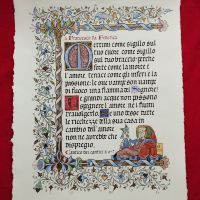 Mettimi come sigillo sul
tuo cuore come sigillo
sul tuo braccio perche
forte come la morte è
l'amore tenace come gli inferi è la
passione: le sue vampe son vampe
di fuoco una fiamma del Signore!
Le grandi acque non possono
spegnere l'amore ne i fiumi
travolgerlo. Se uno desse tutte
le ricchezze della sua casa in
cambio dell'amore
non ne avrebbe che
dispregio.
Cantico dei cantici 8 6-7